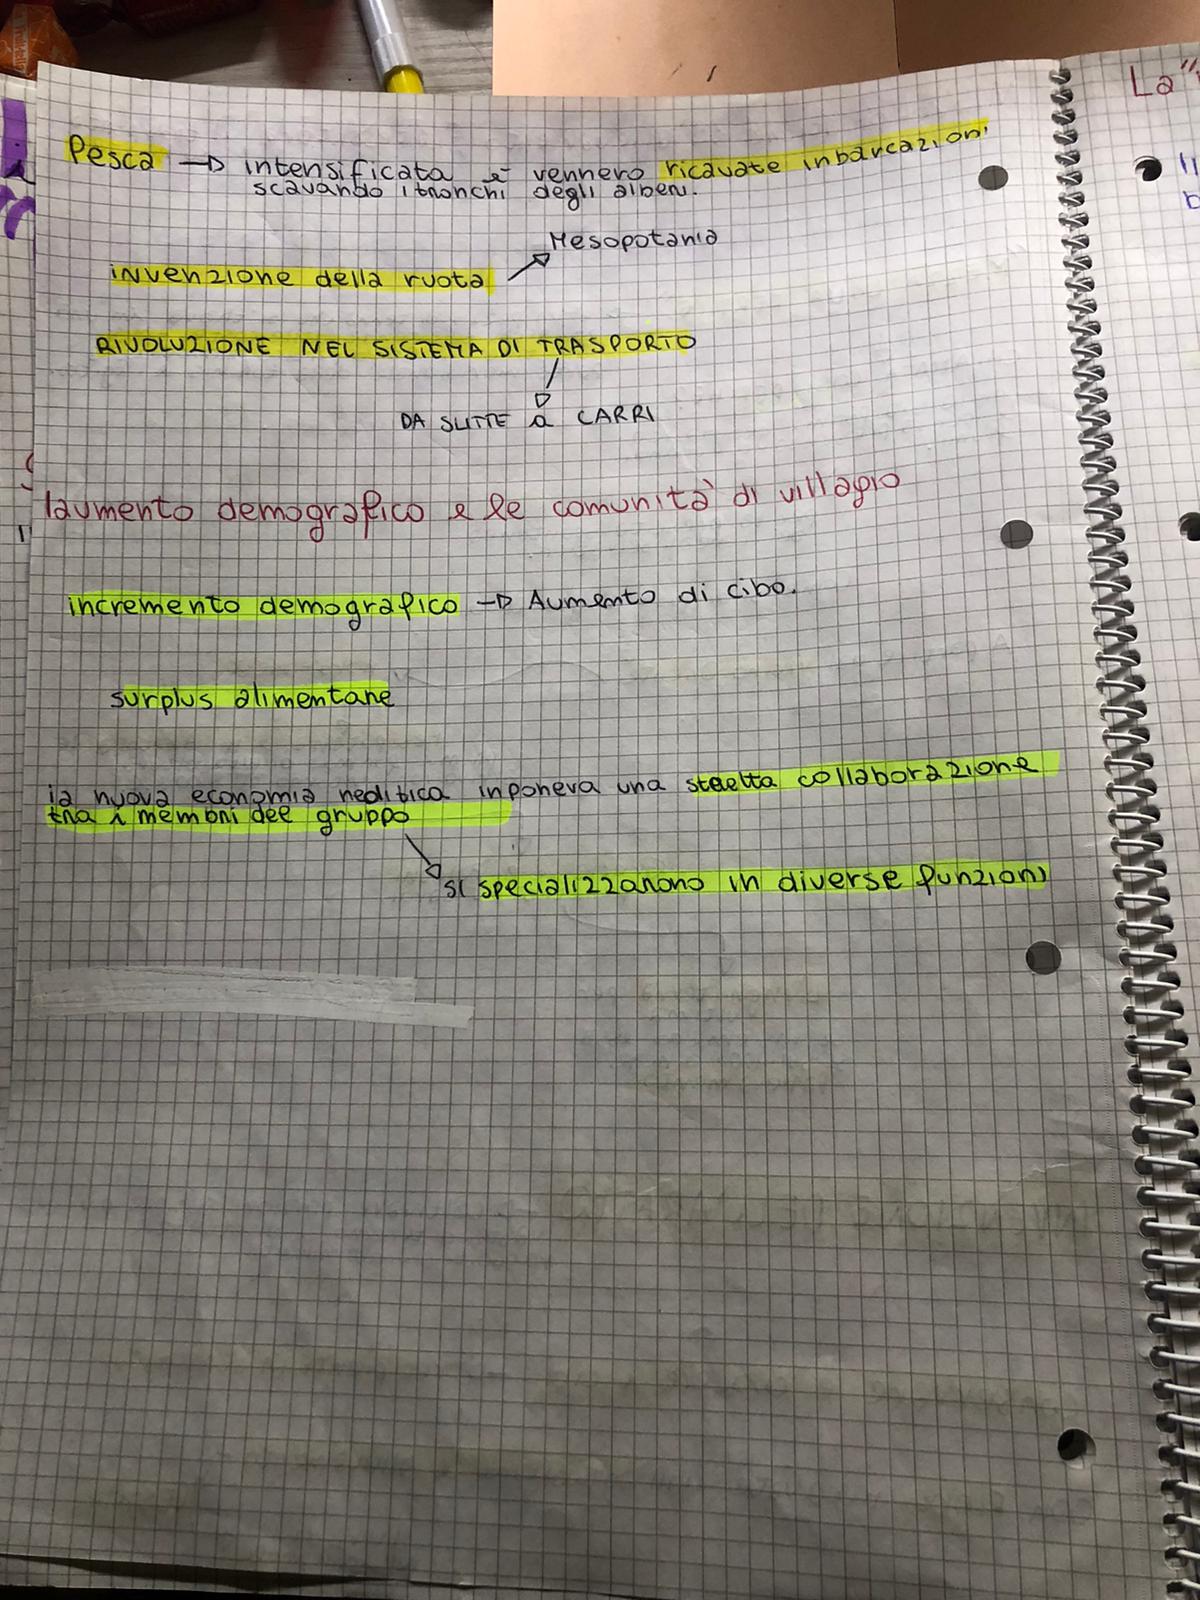 Pesca → intensificata e vennero ricavate inbarcazioni
scavando i tronchi degli alberi.
Mesopotamia
invenzione della ruota
RIVOLUZIONE NEL SISTEMA DI TRASPORTO
DA SLITTE a CARRI
l'aumento demografico e le comunità di villagio
incremento demografico → Aumento di cibo.
surplus alimentare
la nuova economia neolitica inponeva una stretta collaborazione
tra i membri del gruppo
si specializzarono in diverse funzioni
La "